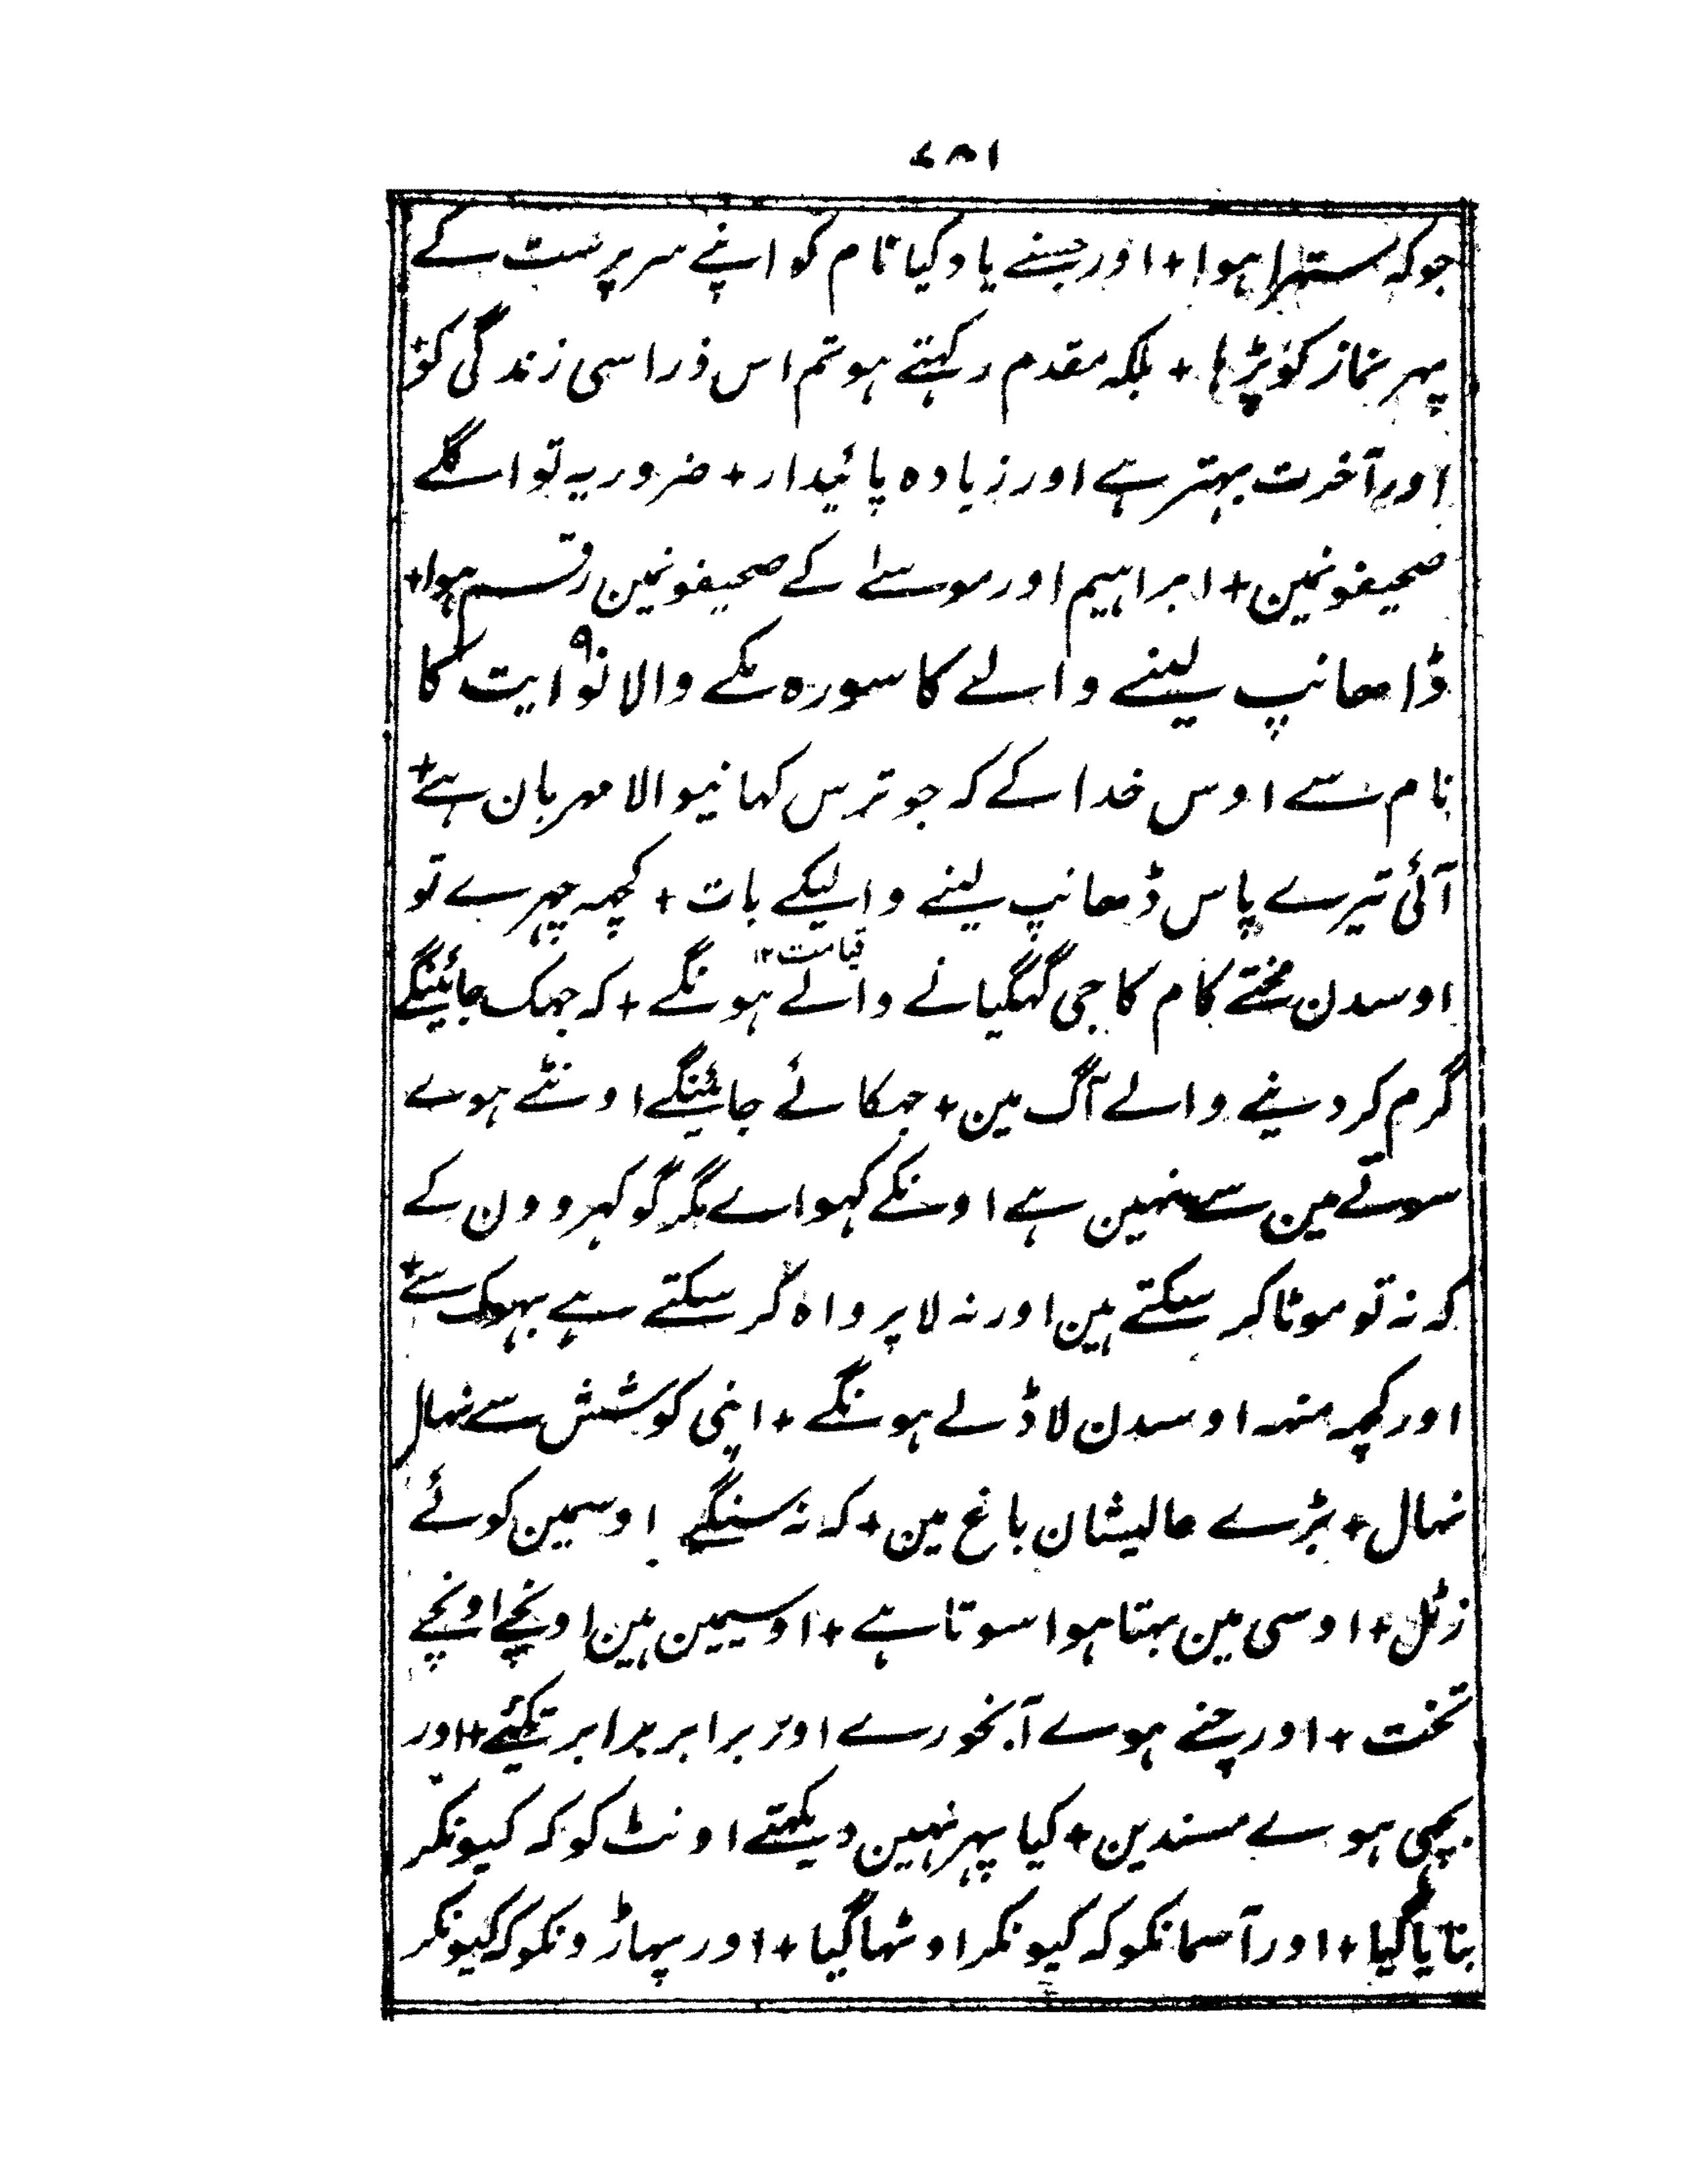 ۷۸۱
جو کہ ستہرا ہوا + اور جسنے یاد کیا نام کو اپنے سرپرست کے
پہر نماز کو پڑہا + بلکہ مقدم رکہتے ہو تم اس ذرا سی زندگی کو +
اور آخرت بہتر ہے اور زیادہ پائیدار + ضرور یہ تو اگلے
صحیفونمین + ابراہیم اور موسےٰ کے صحیفونمین رقم ہوا +
ڈھانپ لینے والے کا سورہ مکے والا نو۹ ایت کا
نام سے اوس خدا کے کہ جو ترس کہانیوالا مہربان ہے +
آئی تیرے پاس ڈھانپ لینے والیکے بات + کچہہ چہرے تو
اوسدن مختے کام کاجی گہگیانے والے ہونگے + کہ جہک جائینگے
قیامت ۱۲
گرم کر دینے والے آگ مین + جہکائے جائینگے اونٹے ہوے
سوتے مین سے نہین ہے اونکے کہواے مگر گوکہرووون کے
کہ نہ تو موٹا کر سکتے ہین اور نہ لاپرواہ کر سکتے ہے بہوک سے +
اور کچہہ منہہ اوسدن لاڈلے ہونگے + اپنی کوشش سے نہال
نہال + بڑے عالیشان باغ مین + کہ نہ سنگے اوسمین کوئے
زٹل + اوسی مین بہتا ہوا سوتا ہے + اوسیمین ہین اونچے اونچے
تخت + اور چنے ہوے آبخورے اور برابر برابر تکیئے + اور
بچہی ہوے مسندین + کیا پہر نہین دیکہتے اونٹ کو کہ کیونکر
بنایا گیا + اور آسمانکو کہ کیونکر اوٹہا گیا + اور پہاڑونکو کہ کیونکر